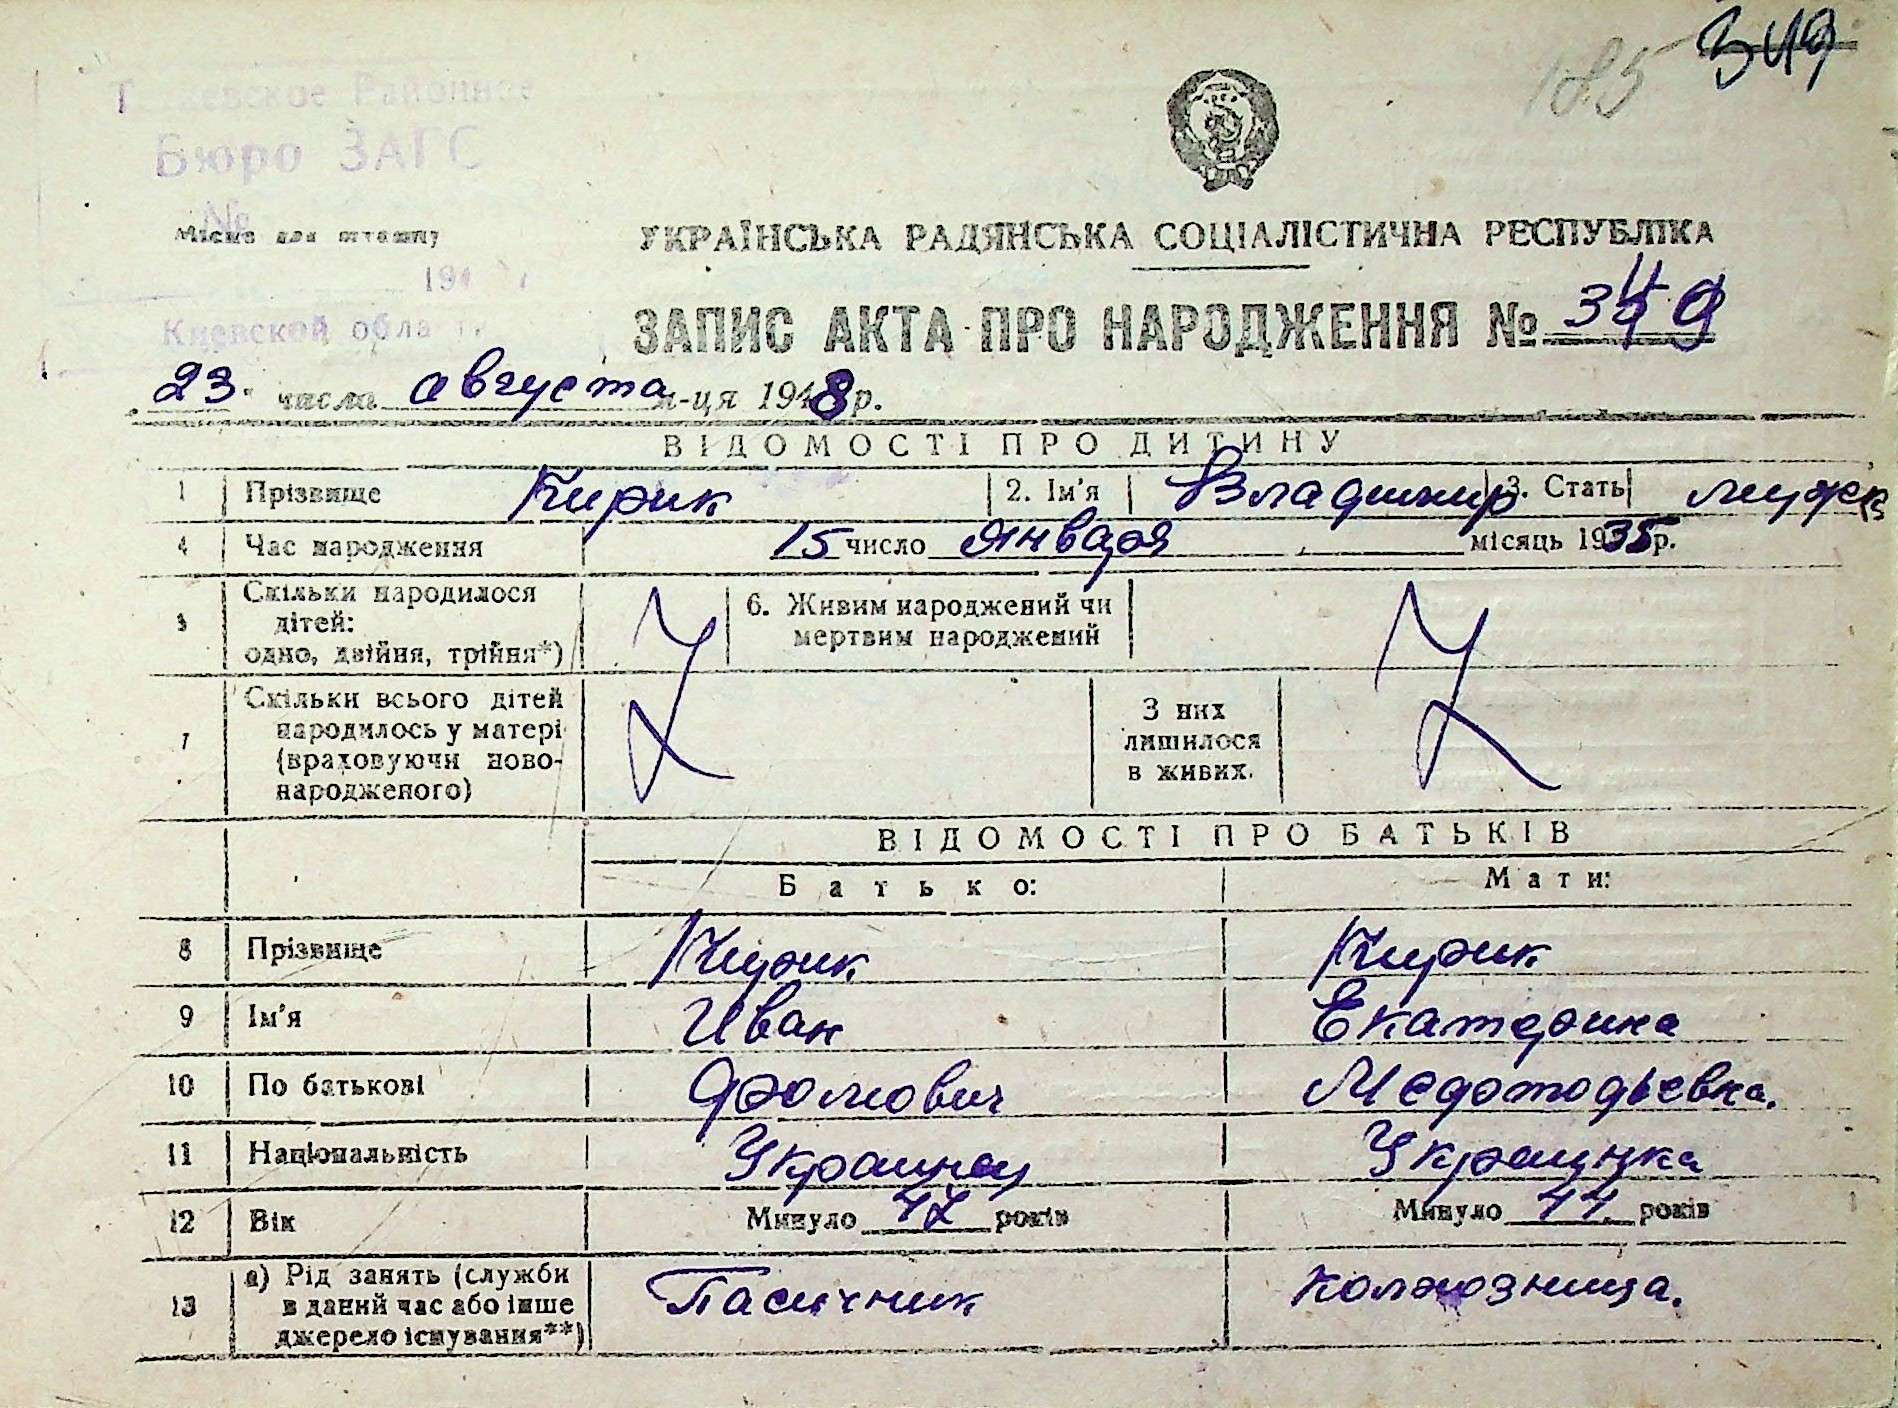 185 349
Районное
Бюро ЗАГС
№
Місце для штампу
194
Киевской области
УКРАЇНСЬКА РАДЯНСЬКА СОЦІАЛІСТИЧНА РЕСПУБЛІКА
ЗАПИС АКТА ПРО НАРОДЖЕННЯ № 349
23 числа августа м-ця 1948 р.
ВІДОМОСТІ ПРО ДИТИНУ
1 Прізвище Кирик 2. Ім'я Владимир 3. Стать мужск
4 Час народження 15 число января місяць 1935 р.
5 Скільки народилося дітей: одно, двійня, трійня*) 6. Живим народжений чи мертвим народжений
7 Скільки всього дітей народилось у матері (враховуючи ново-народженого) З них лишилося в живих.
ВІДОМОСТІ ПРО БАТЬКІВ
Батько: Мати:
8 Прізвище Кирик Кирик
9 Ім'я Иван Екатерина
10 По батькові Фомович Мефотодьевна.
11 Національність Украинец Украинка
12 Вік Минуло 47 років Минуло 44 років
13 а) Рід занять (служби в даний час або інше джерело існування**) Пасичник колхозница.